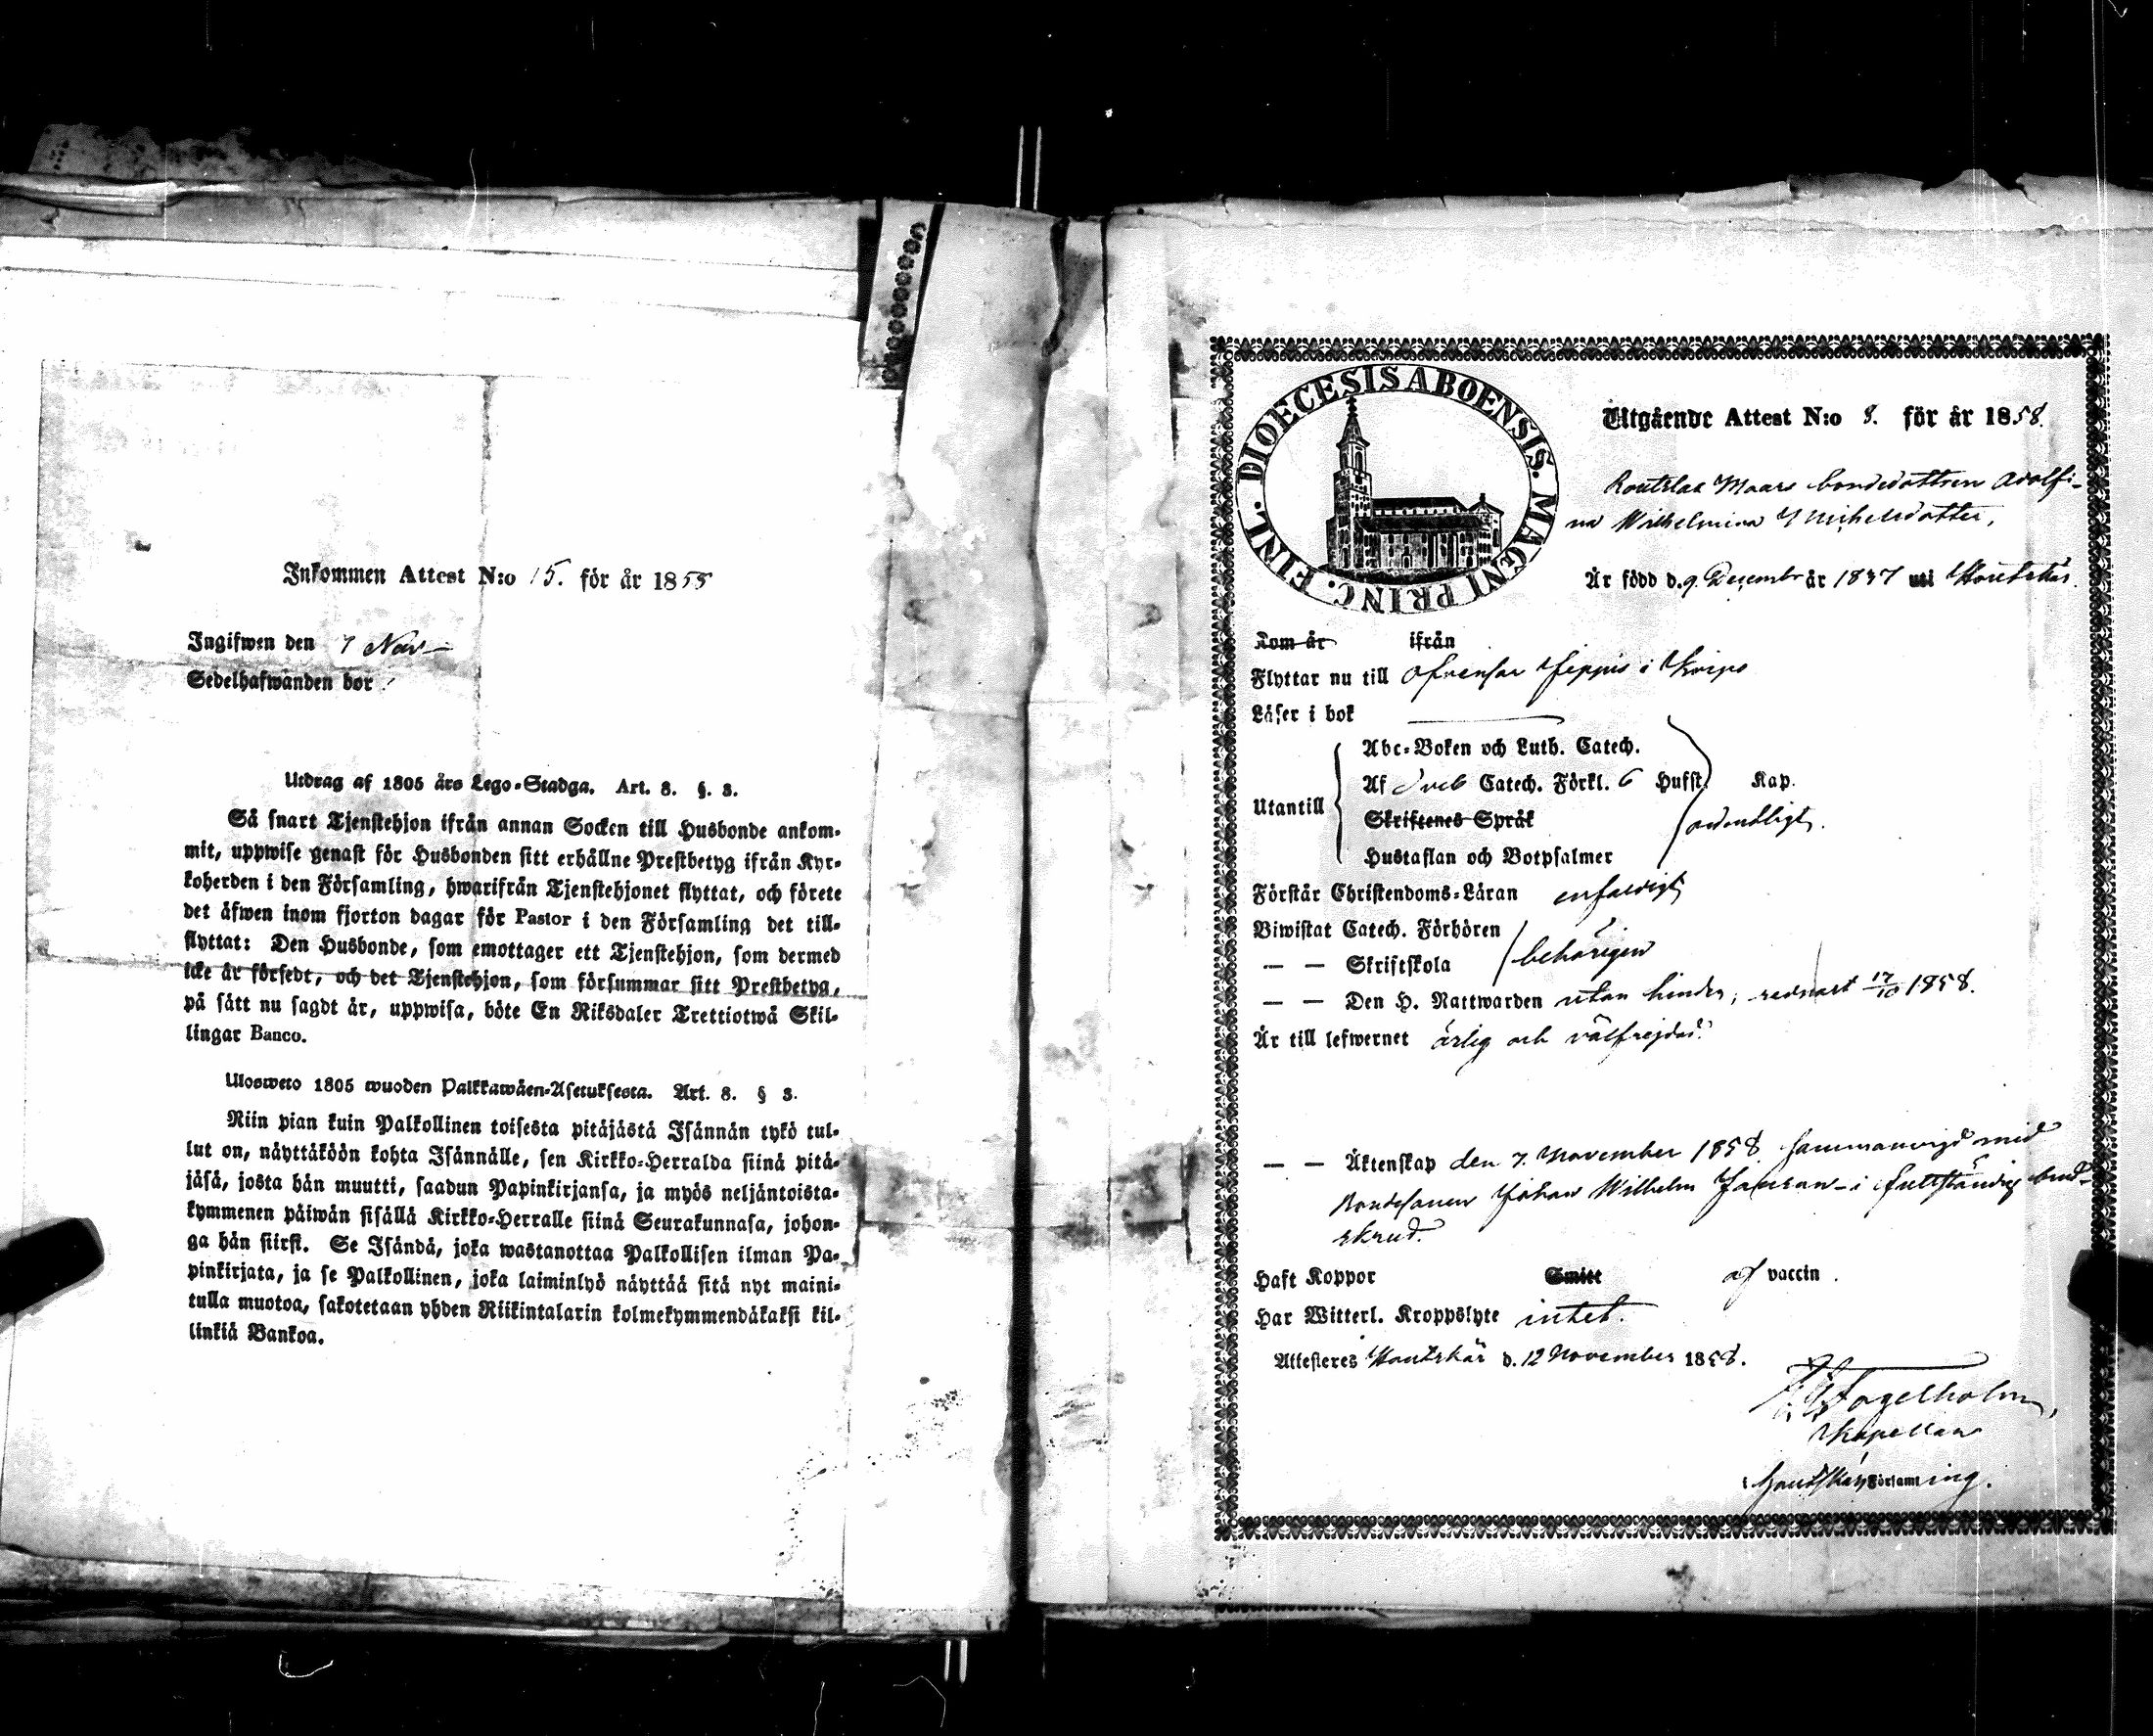 Inkommen Attest N:o 15. för år 1855
Ingifwen den 7 Nov
Sedelhafwanden bor
Utdrag af 1805 års Lego-Stadga. Art. 8. §. 3.
Så snart Tjenstehjon ifrån annan Socken till Husbonde ankom-
mit, uppwise genast för Husbonden sitt erhållne Prestbetyg ifrån Kyr-
koherden i den Församling, hwarifrån Tjenstehjonet flyttat, och förete
det äfwen inom fjorton dagar för Pastor i den Församling det till-
flyttat: Den Husbonde, som emottager ett Tjenstehjon, som dermed
icke är försedt, och det Tjenstehjon, som försummar sitt Prestbetyg,
på sätt nu sagdt är, uppwisa, böte En Riksdaler Trettiotwå Skil-
lingar Banco.
Ulosweto 1805 wuoden Palkkawäen-Asetuksesta. Art. 8. § 3.
Niin pian kuin Palkollinen toisesta pitäjästä Isännän tykö tul-
lut on, näyttäköön kohta Isännälle, sen Kirkko-Herralda siinä pitä-
jäsä, josta hän muutti, saadun Papinkirjansa, ja myös neljäntoista-
kymmenen päiwän sisällä Kirkko-Herralle siinä Seurakunnasa, johon-
ga hän siirst. Se Isändä, joka wastanottaa Palkollisen ilman Pa-
pinkirjata, ja se Palkollinen, joka laiminlyö näyttää sitä nyt maini-
tulla muotoa, sakotetaan yhden Riikintalarin kolmekymmendäkaksi kil-
linkiä Bankoa.
FINL. DIOECESIS ABOENSIS. MAGNI PRINC.
Utgående Attest N:o 8. för år 1858.
Maars bondedottren Adolfi-
na Wilhelmina Michelsdotter,
Är född d. 9. Decembr år 1837 uti Houtskär.
Kom år ifrån
Flyttar nu till Ofvensor i Korpo
Läser i bok
Abc-Boken och Luth. Catech.
Af Sveb Catech. Förkl. 6 Hufst. Kap.
Utantill
Skriftenes Språk
ordentligt.
Hustaflan och Botpsalmer
Förstår Christendoms-Läran enfaldigt
Biwistat Catech. Förhören
— — Skriftskola behörigen
— — Den H. Nattwarden utan hinder, sednast 17/10 1858.
Är till lefwernet ärlig och välfrejdad.
— — Äktenskap den 7. November 1858 sammanvigd med
Bondesonen Johan Wilhelm Jansson i fullständig brud-
skrud.
Haft Koppor Smitt af vaccin.
Har Witterl. Kroppslyte intet.
Attesteres Houtskär d. 12 November 1858.
Fagelholm,
Kapellan
i Houtskärs Församl ing.